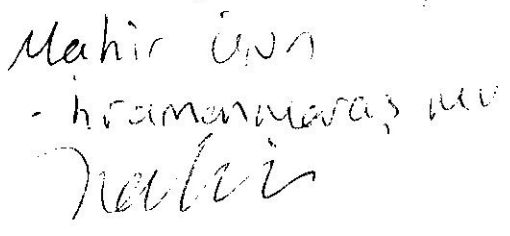 Mahir Ünal
Kahramanmaraş MV